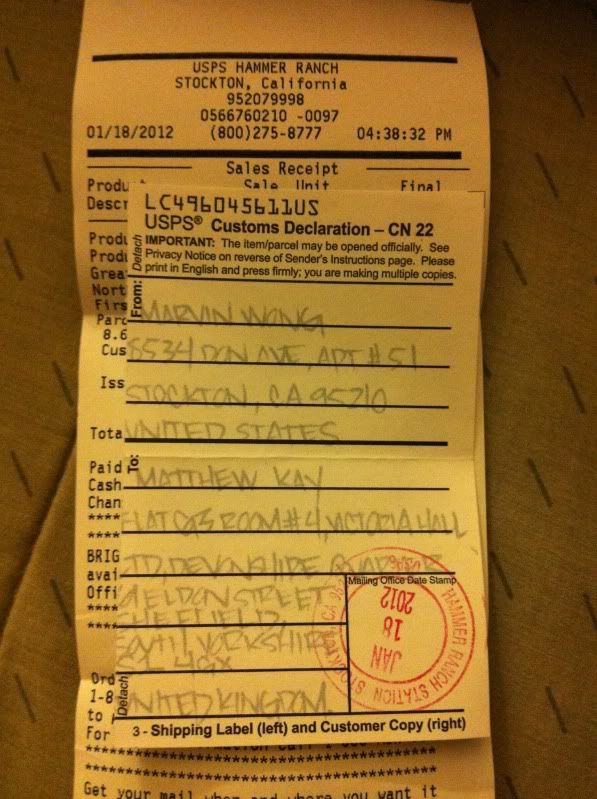 USPS HAMMER RANCH
STOCKTON, California
952079998
0566760210 -0097
01/18/2012 (800)275-8777 04:38:32 PM
Sales Receipt
Produ Sale Unit Final
Descr
LC496045611US
USPS® Customs Declaration – CN 22
Detach
IMPORTANT: The item/parcel may be opened officially. See
Privacy Notice on reverse of Sender's Instructions page. Please
print in English and press firmly; you are making multiple copies.
Produ
Produ
Grea
Nort
Firs
Parc
8.6
Cus
Iss
Tota
Paid
Cash
Chan
****
****
BRIG
avai
Offi
****
****
Ord
1-8
to
For
From:
MARVIN WONG
8534 DON AVE, APT #51
STOCKTON, CA 95210
UNITED STATES
To:
MATTHEW KAY
FLAT ROOM #4, VICTORIA HALL
LTD, DEVONSHIRE QUARTER
ELDON STREET
SHEFFIELD,
SOUTH YORKSHIRE
UNITED KINGDOM
Mailing Office Date Stamp
HAMMER RANCH STATION STOCKTON, CA
JAN
18
2012
Detach
3 - Shipping Label (left) and Customer Copy (right)
****************************************
****************************************
Get your mail when and where you want it